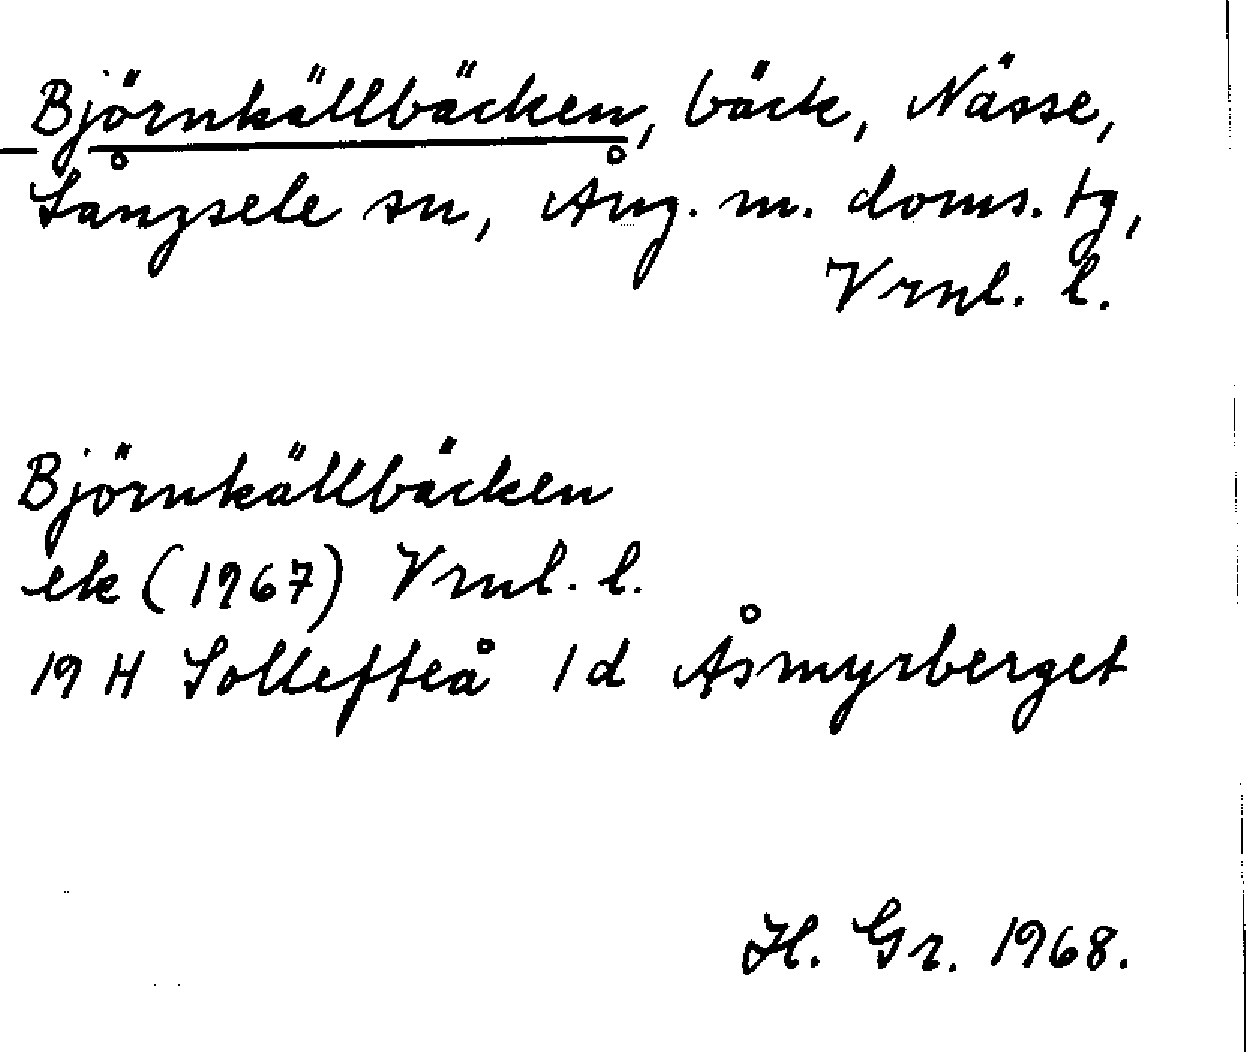 Björnkällbäcken, bäck, Nässe,
Långsele sn, Ång. m. doms. tg,
Vrnl. l.
Björnkällbäcken
ek (1967) Vrnl. l.
19 H Sollefteå 1d Åsmyrberget
H. Gr. 1968.